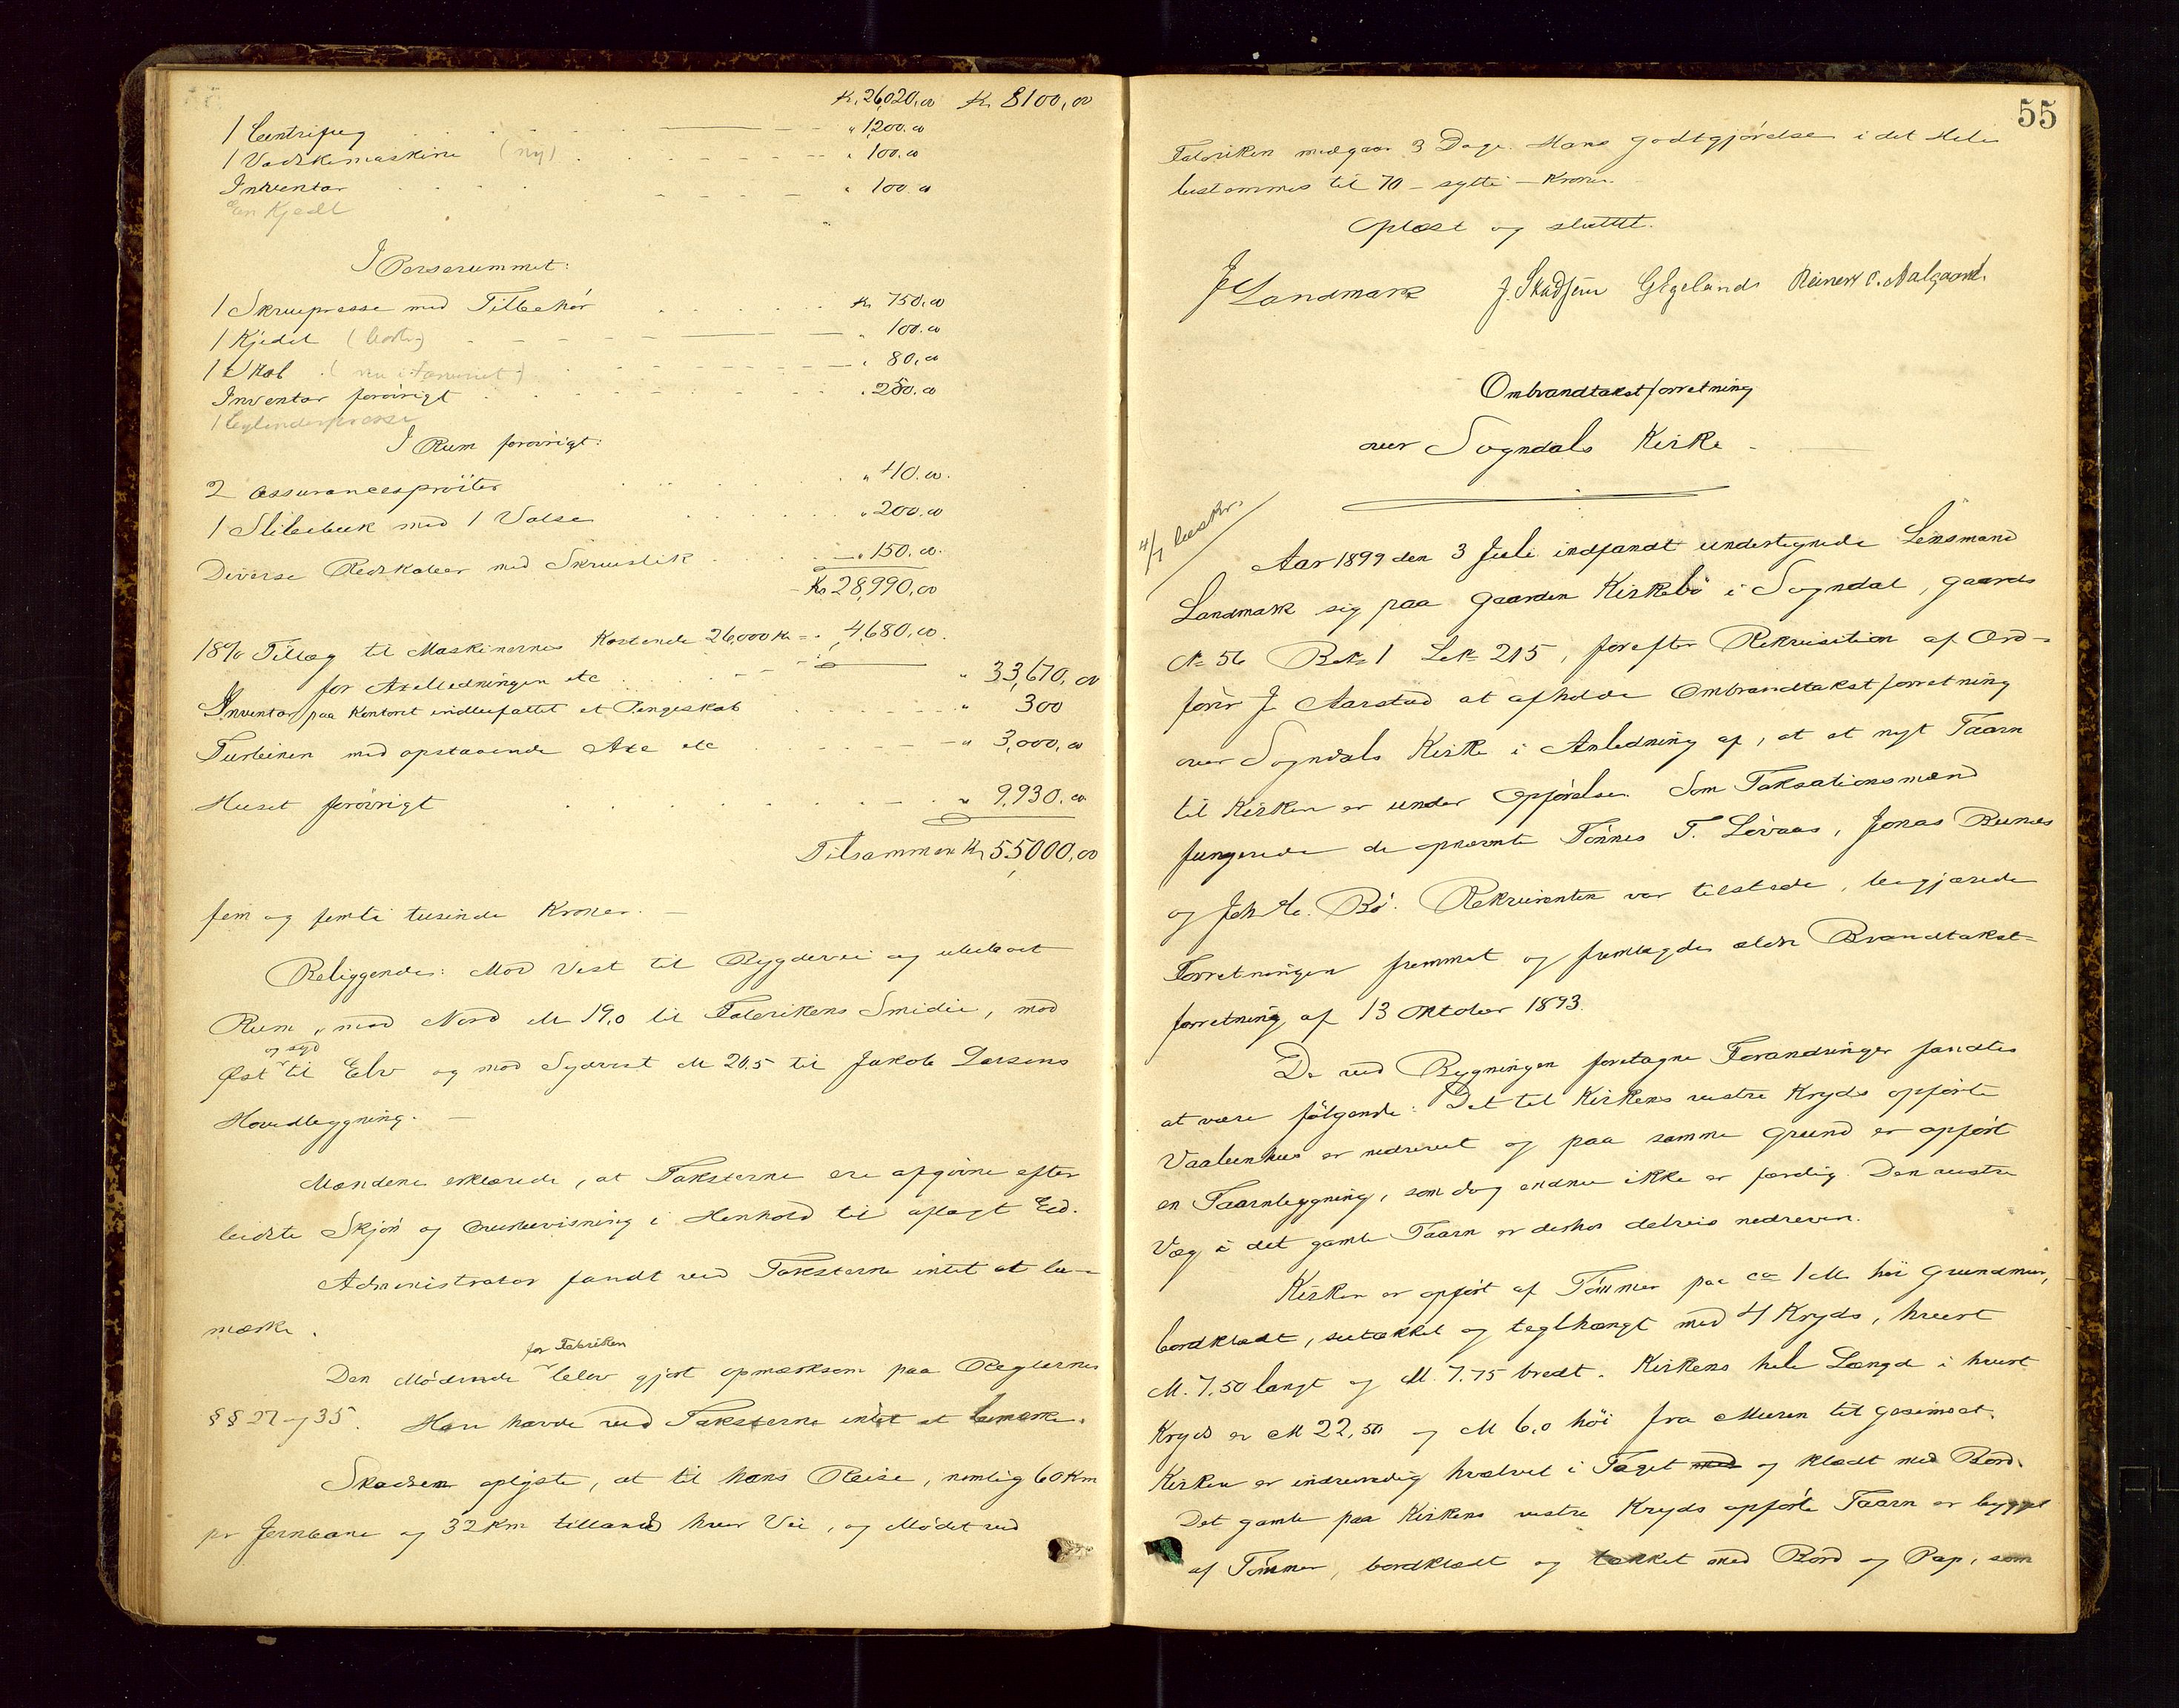 Kr. 26,020,00 Kr. 8100,00
1 Centrifug " 1,200.00
1 Vadskemaskine (ny) " 100.00
Inventar " 100.00
En Kjedl
I Perserummet:
1 Skruepresse med Tilbehør Kr 750.00
1 Kjedel (borte) " 100.00
1 Skab (nu i Farveriet) " 80.00
Inventar forøvrigt " 250.00
1 Cylinderpresse
I Rum forøvrigt:
2 Assurancesprøiter " 40.00.
1 Slibebuk med 1 Valse " 200.00
Diverse Redskaber med Skruestik " 150.00.
Kr 28,990,00
18% Tillæg til Maskinernes Kostende 26,000 Kr = " 4,680.00.
for Axelledningen etc " 33,670,00
Inventar paa Kontoret indbefattet et Pengeskab " 300
Turbinen med opstaaende Axe etc " 3,000,00
Huset forøvrigt " 9,930.00
Tilsammen Kr 55000,00
fem og femti tusinde Kroner. —
Beliggende: Mod Vest til Bygdevei og ubeboet
Rum, mod Nord M 19,0 til Fabrikens Smidie, mod
og syd
Øst til Elv og mod Sydvest M 20.5 til Jakob Larsens
Hovedbygning. —
Mændene erklærede, at Taksterne ere afgivne efter
bedste Skjøn og Overbevisning i Henhold til aflagt Eed.
Administrator fandt ved Taksterne intet at be-
mærke.
for Fabriken
Den Mødende blev gjort opmærksom paa Reglernes
§§ 27 og 35. Han havde ved Taksterne intet at bemærke.
Skadsem oplyste, at til hans Reise, nemlig 60 Km
pr Jernbane og 32 Km tillands hver Vei, og Mødet ved
55
Fabriken medgaar 3 Dage. Hans Godtgjørelse i det Hele
bestemmes til 70 - sytti - Kroner. -
Oplæst og sluttet.
Landmark J. Skadsem G Egelands Reinert O. Aalgaard.
Ombrandtakstforretning
over Sogndals Kirke -
4/7 beskr.
Aar 1899 den 3 Juli indfandt undertegnede Lensmand
Landmark sig paa Gaarden Kirkebø i Sogndal, Gaards
No 56 Bk 1 L. 215, for efter Rekvisition af Ord-
fører J. Aarstad at afholde Ombrandtakstforretning
over Sogndals Kirke i Anledning af, at et nyt Taarn
til Kirken er under Opførelse. Som Taksationsmænd
fungerede de opnævnte Tønnes T. Løvaas, Jonas Runes
og Joh. M. Bø. Rekvirenten var tilstede, begjærede
Forretningen fremmet og fremlagdes ældre Brandtakst-
forretning af 13 Oktober 1893.
De ved Bygningen foretagne Forandringer fandtes
at være følgende: Det til Kirkens vestre Kryds opførte
Vaabenhus er nedrevet og paa samme Grund er opført
en Taarnbygning, som dog endnu ikke er færdig. Den vestre
Væg i det gamle Taarn er derhos delvis nedreven.
Kirken er opført af Tømmer paa ca 1 M. høi Grundmur,
bordklædt, sutækket og teglhængt med 4 Kryds, hvert
M. 7,50 langt og M. 7.75 bredt. Kirkens hele Længd i hvert
Kryds er M 22,50 og M 6,0 høi fra Muren til Gesimset.
Kirken er indvendig hvælvet i Taget med og klædt med Bord.
Det gamle paa Kirkens vestre Kryds opførte Taarn er bygget
af Tømmer, bordklædt og tækket med Bord og Pap, som